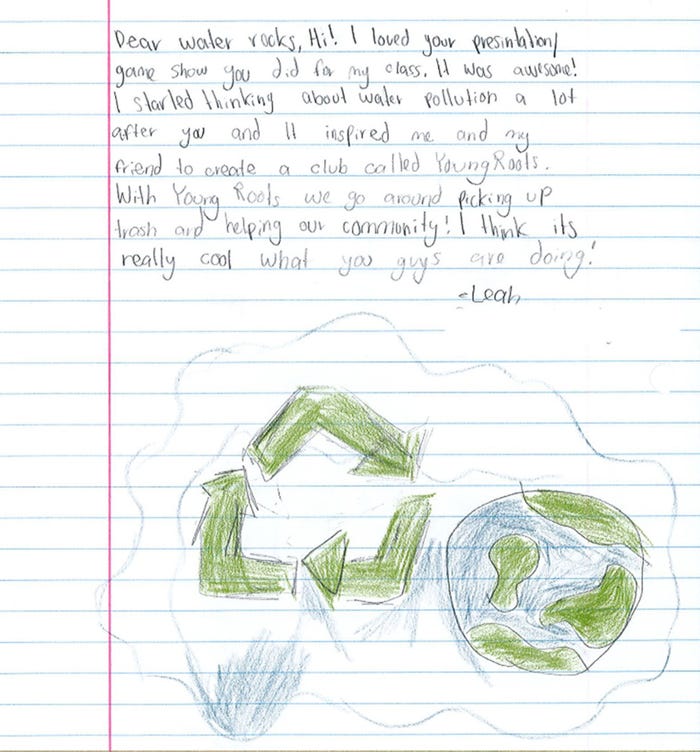 Dear water rocks, Hi! I loved your presintation/
game show you did for my class. It was awesome!
I started thinking about water pollution a lot
after you and It inspired me and my
friend to create a club called Young Roots.
With Young Roots we go around picking up
trash and helping our community! I think its
really cool what you guys are doing!
-Leah